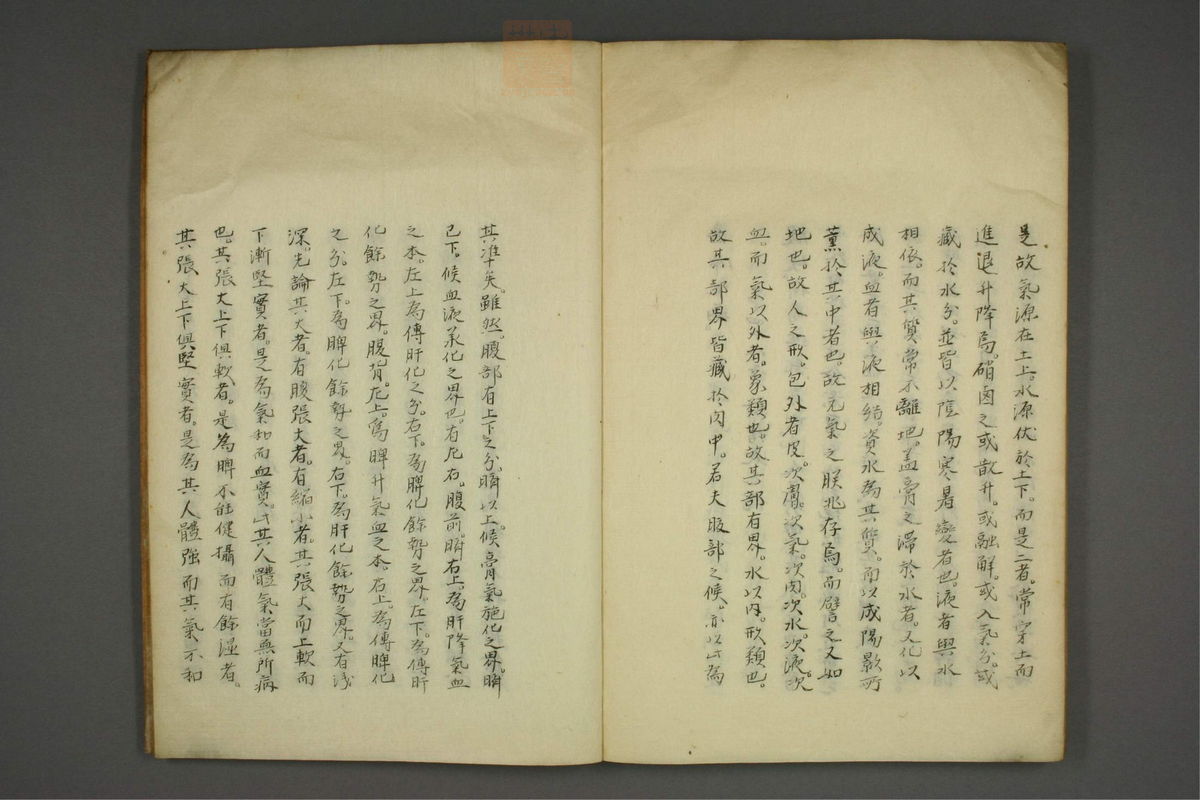 是故氣源在土上。水源伏於土下。而是二者。常穿土而
進退升降焉。硝鹵之或散升。或融解。或入氣分。或
藏於水分。並皆以陰陽寒暑變者也。液者與水
相依。而其質常不離地。蓋膏之滯於水者。又化以
成液。血者與液相結。資水為其質。而以成陽影所
薰於其中者也。故元氣之朕兆存焉。而譬之又如
地也。故人之形。包外者皮。次膚。次氣。次肉。次水。次液。次
血。而氣以外者。象類也。故其部有界。水以内。形類也。
故其部界皆藏於肉中。若夫腹部之候。亦以此為
其準矣。雖然。腹部有上下之分。臍以上。候膏氣施化之界。臍
已下。候血液承化之界也。有左右。腹前。臍右上。為肝降氣血
之本。左上為傳肝化之分。右下。為脾化餘勢之界。左下。為傳肝
化餘勢之界。腹背。左上。為脾升氣血之本。右上。為傳脾化
之分。左下。為脾化餘勢之界。右下。為肝化餘勢之界。又有淺
深。先論其大者。有腹張大者。有縮小者。其張大而上軟而
下漸堅實者。是為氣和而血實。此其人體氣當無所病
也。其張大上下俱軟者。是為脾不能健攝而有餘濕者。
其張大上下俱堅實者。是為其人體強而其氣不和